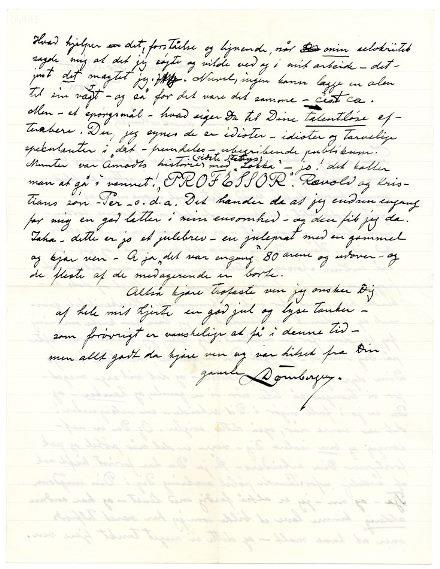 Hvad hjelper det, forståelse og lignende, når min selvkritik
sagde mig at det jeg søgte og vilde ved og i mit arbeide – det –
just det magtet jeg ikke. Nuvel, ingen kann lægge en alen
til sin vægt – og så får det være det samme – c'est ca.
Men – et spørgsmål – hvad siger Du til Dine talentløse ef-
terabere. Du, jeg synes de er idioter – idioter og tarvelige
spekulanter i det – fremdeles – ubegribende publikum.
Munter var Amaldts historie med Lokke! – jo! det kalter
man at gå i vannet! "PROFESSOR". Revold og Kris-
tians søn – Per – o.s.a. Det hænder da at jeg endnu engang
får mig en god latter i min ensomhed – og den fik jeg da.
Jaha – dette er jo et julebrev – en juleprat med en gammel
og kjær ven – A ja, det var engang" 80 årene og udover – og
de fleste af de medagerende er borte.
Altså kjære trofaste ven jeg ønsker Dig
af hele mit hjerte en god jul og lyse tanker –
som forøvrigt er vanskelige at få i denne tid –
men allt godt da kjære ven og vær hilset fra Din
gamle Dørnberger.